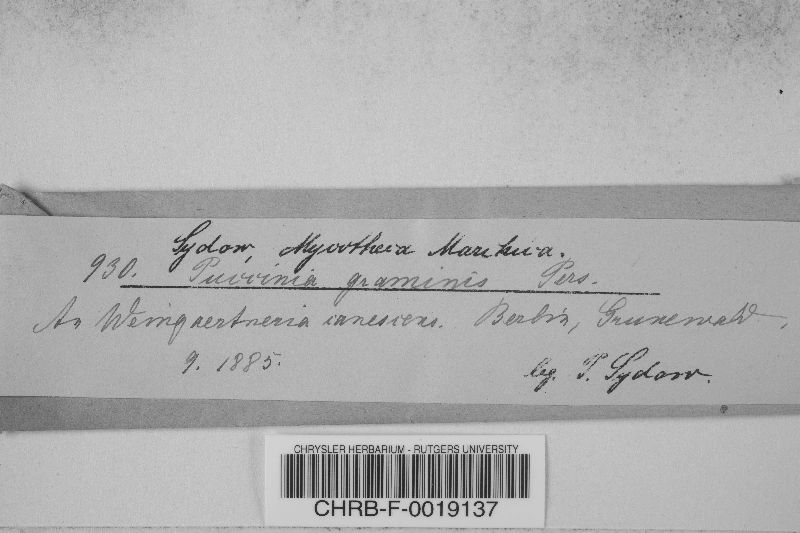 Sydow, Mycotheca Marchica.
930. Puccinia graminis Pers.
An Weingaertneria canescens. Berlin, Grunewald,
9. 1885.
leg. P. Sydow.
CHRYSLER HERBARIUM - RUTGERS UNIVERSITY
CHRB-F-0019137